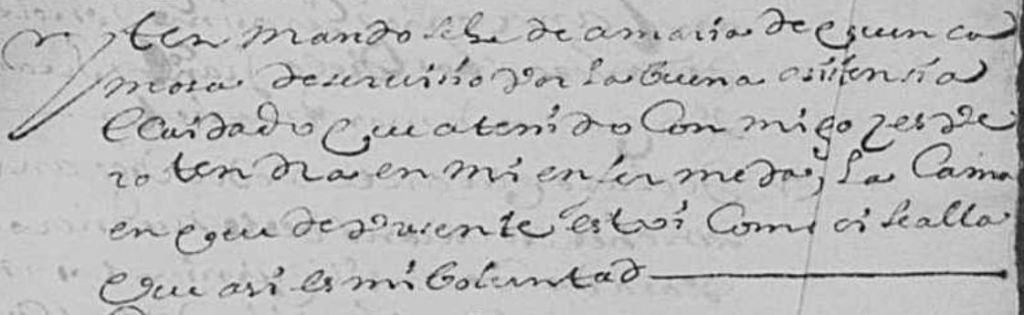 Yten mando se le de a maria de quinca
mosa de servisio por la buena asistensia
E Cuidado que a tenido Con migo y espe
ro tendra en mi enfermedad, la Cama
en que de presente estoi Como oi se alla
que asi es mi boluntad